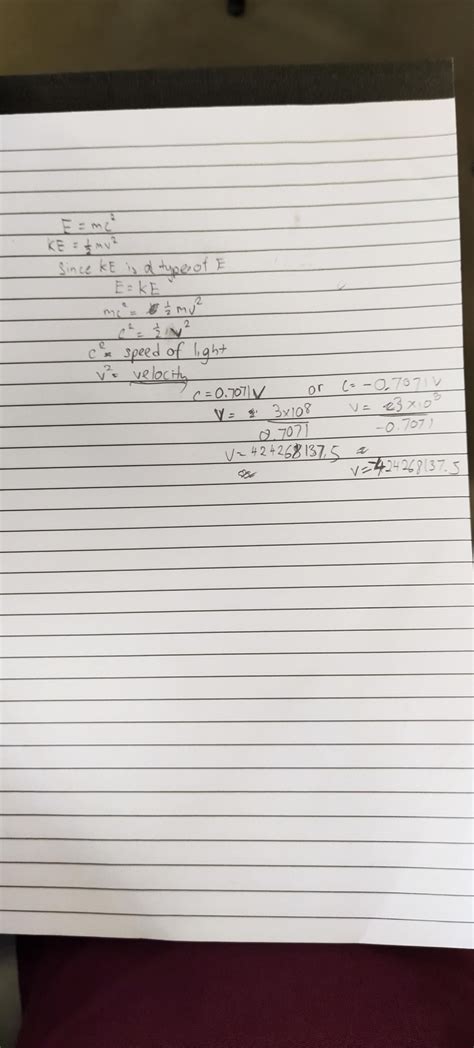 E = mc²
KE = ½mv²
Since KE is a type of E
E = KE
mc² = ½mv²
c² = ½v²
c² = speed of light
v² = velocity
c = 0.7071V or c = -0.7071V
V = 3×108 / 0.7071 V = 3×10⁸ / -0.7071
V = 424268137.5
V = -424268137.5